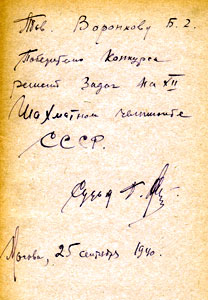 Тов. Воронкову Б. Г.
Победителю Конкурса
решений Задач на XII
Шахматном чемпионате
СССР.
Судья
Москва, 25 сентября 1940.